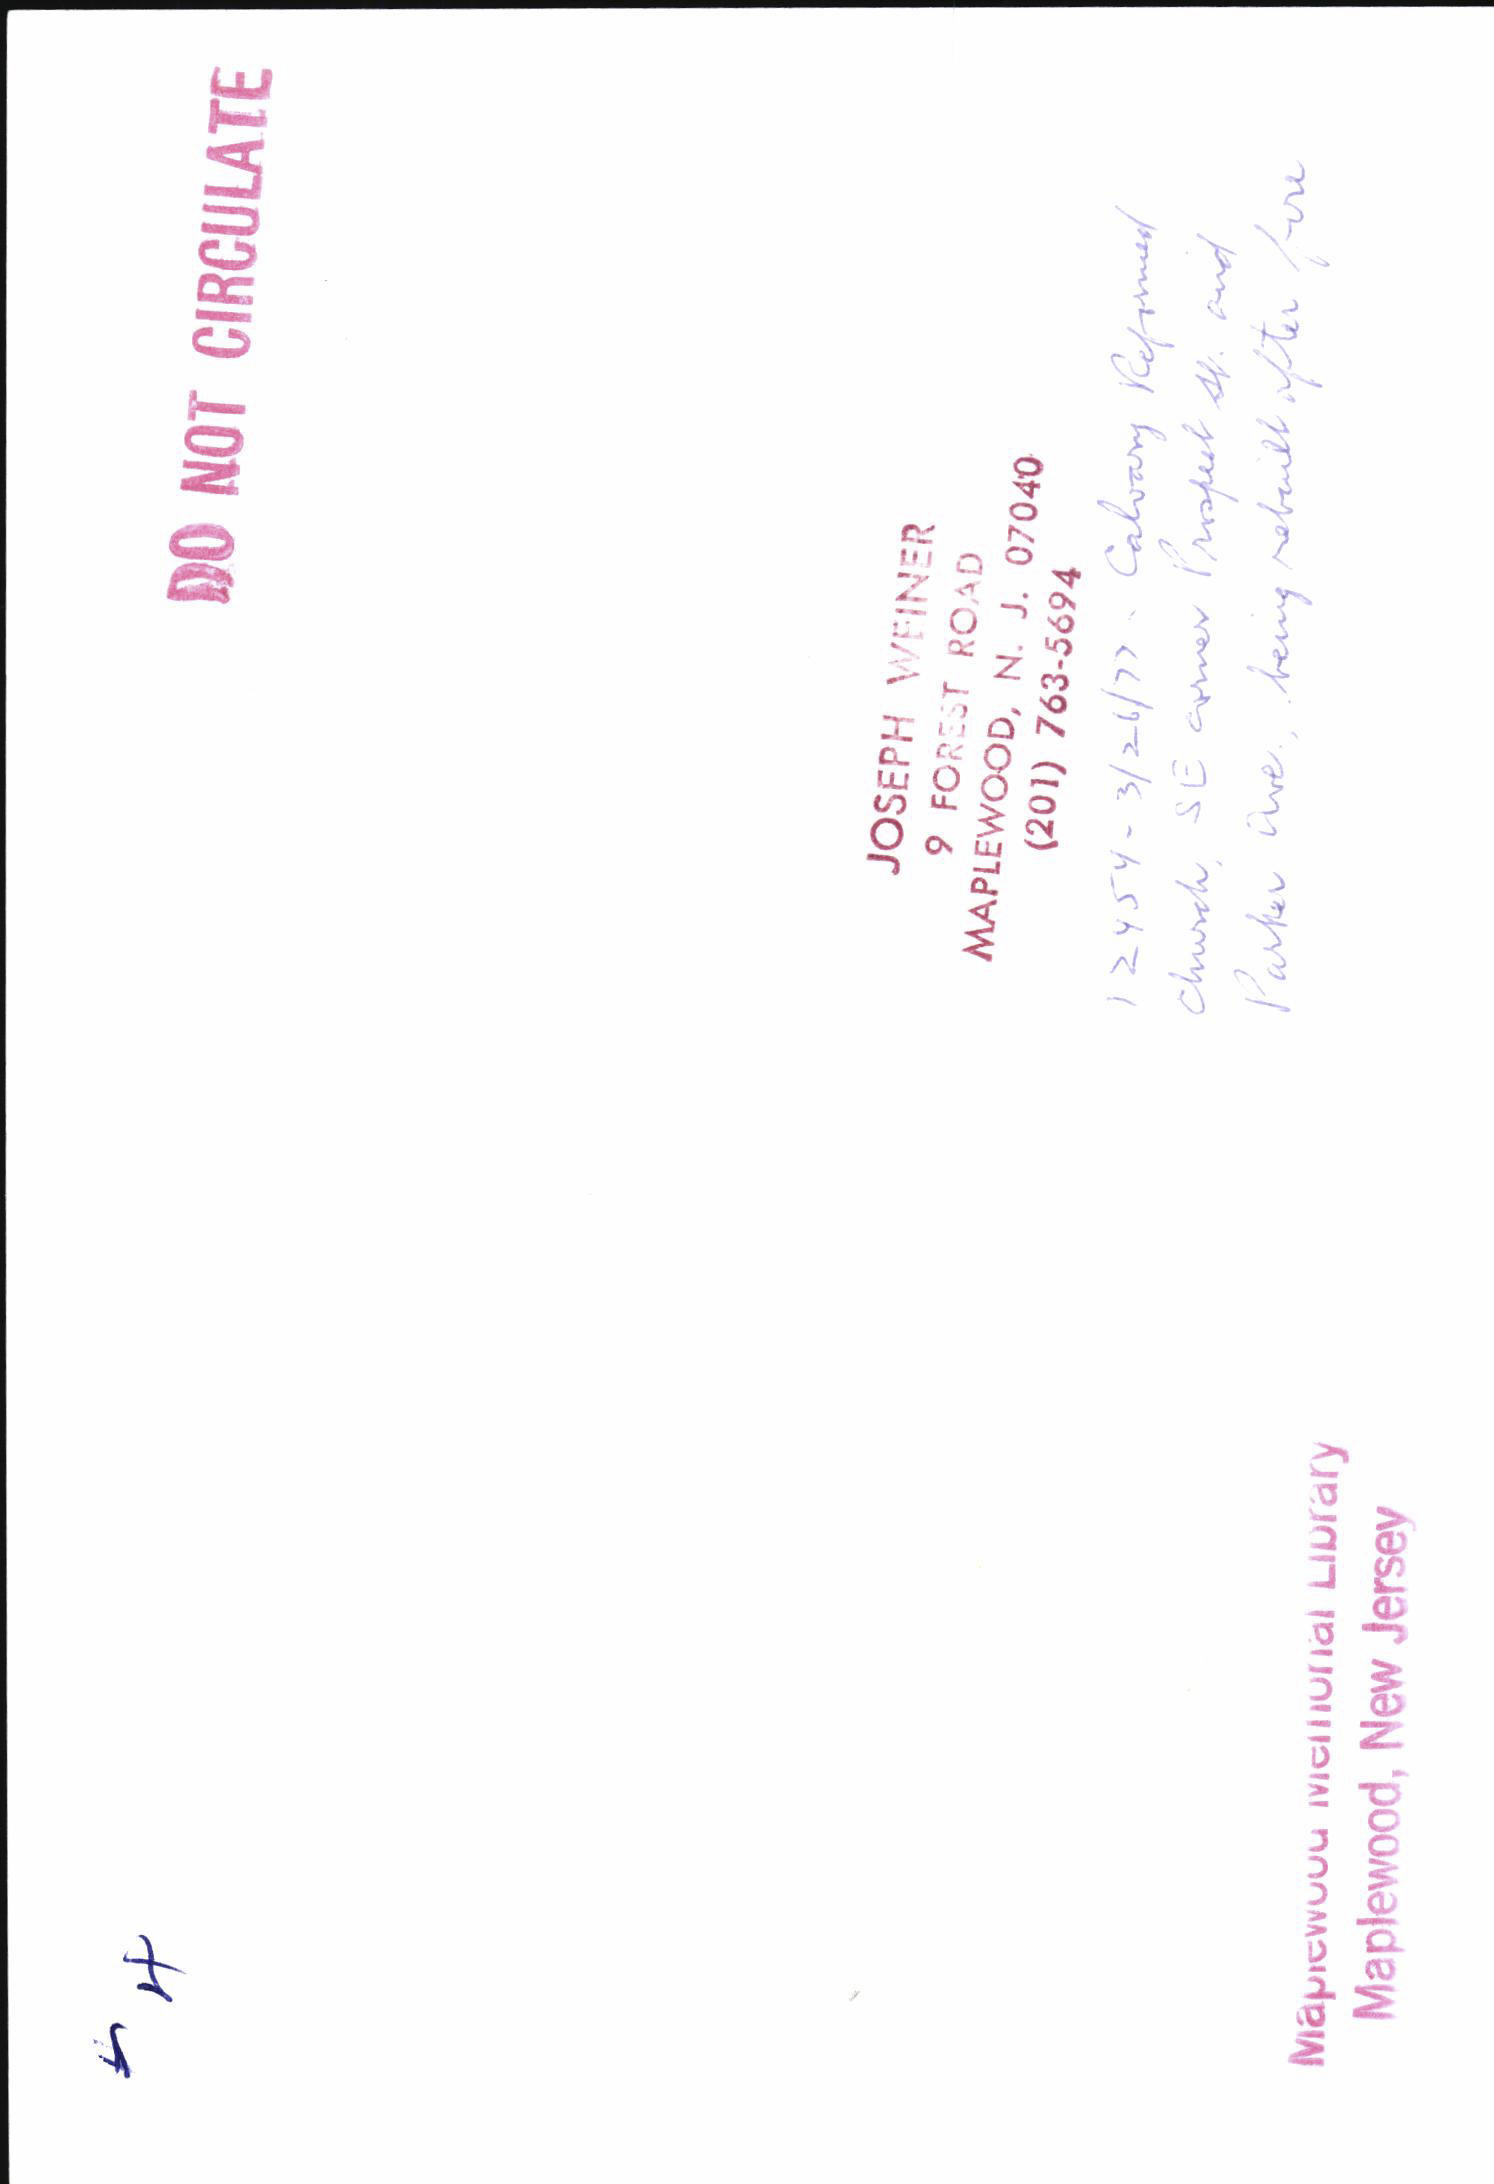 54
DO NOT CIRCULATE
JOSEPH WEINER
9 FOREST ROAD
MAPLEWOOD, N. J. 07040
(201) 763-5694
12454 - 3/26/77 - Calvary Reformed
Church, SE corner Prospect St. and
Parker Ave., being rebuilt after fire
Maplewood Memorial Library
Maplewood, New Jersey